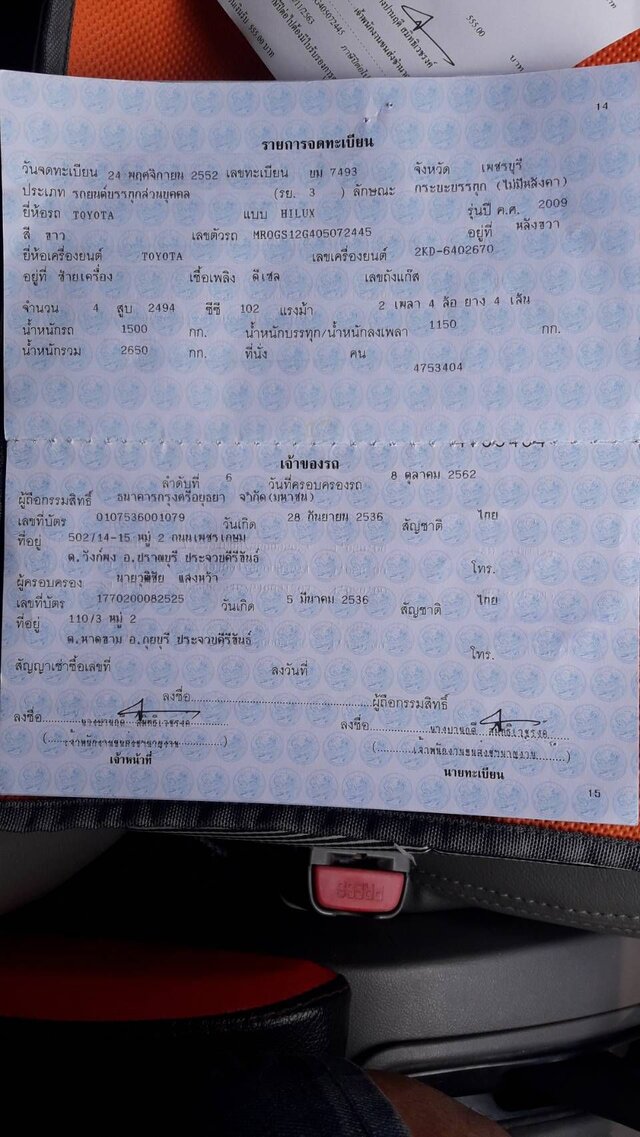 555.00
บาท
14
รายการจดทะเบียน
วันจดทะเบียน 24 พฤศจิกายน 2552 เลขทะเบียน ยม 7493 จังหวัด เพชรบุรี
ประเภท รถยนต์บรรทุกส่วนบุคคล (รย. 3 ) ลักษณะ กระยะบรรทุก (ไม่มีหลังคา)
ยี่ห้อรถ TOYOTA แบบ HILUX รุ่นปี ค.ศ. 2009
สี ขาว เลขตัวรถ MR0GS12G405072445 อยู่ที่ หลังขวา
ยี่ห้อเครื่องยนต์ TOYOTA เลขเครื่องยนต์ 2KD-6402670
อยู่ที่ ซ้ายเครื่อง เชื้อเพลิง ดีเซล เลขถังแก๊ส
จำนวน 4 สูบ 2494 ซีซี 102 แรงม้า 2 เพลา 4 ล้อ ยาง 4 เส้น
น้ำหนักรถ 1500 กก. น้ำหนักบรรทุก/น้ำหนักลงเพลา 1150 กก.
น้ำหนักรวม 2650 กก. ที่นั่ง คน
4753404
เจ้าของรถ
ลำดับที่ 6 วันที่ครอบครองรถ 8 ตุลาคม 2562
ผู้ถือกรรมสิทธิ์ ธนาคารกรุงศรีอยุธยา จำกัด(มหาชน)
เลขที่บัตร 0107536001079 วันเกิด 28 กันยายน 2536 สัญชาติ ไทย
ที่อยู่ 502/14-15 หมู่ 2 ถนนเพชรเกษม
ต.วังก์พง อ.ปราณบุรี ประจวบคีรีขันธ์ โทร.
ผู้ครอบครอง นายวุฒิชัย แสงหว้า
เลขที่บัตร 1770200082525 วันเกิด 5 มีนาคม 2536 สัญชาติ ไทย
ที่อยู่ 110/3 หมู่ 2
ต.หาดขาม อ.กุยบุรี ประจวบคีรีขันธ์ โทร.
สัญญาเช่าซื้อเลขที่ ลงวันที่
ลงชื่อ ผู้ถือกรรมสิทธิ์
ลงชื่อ ลงชื่อ
(เจ้าพนักงานขนส่งชำนาญงาน) (เจ้าพนักงานขนส่งชำนาญงาน)
เจ้าหน้าที่ นายทะเบียน
15
PRESS